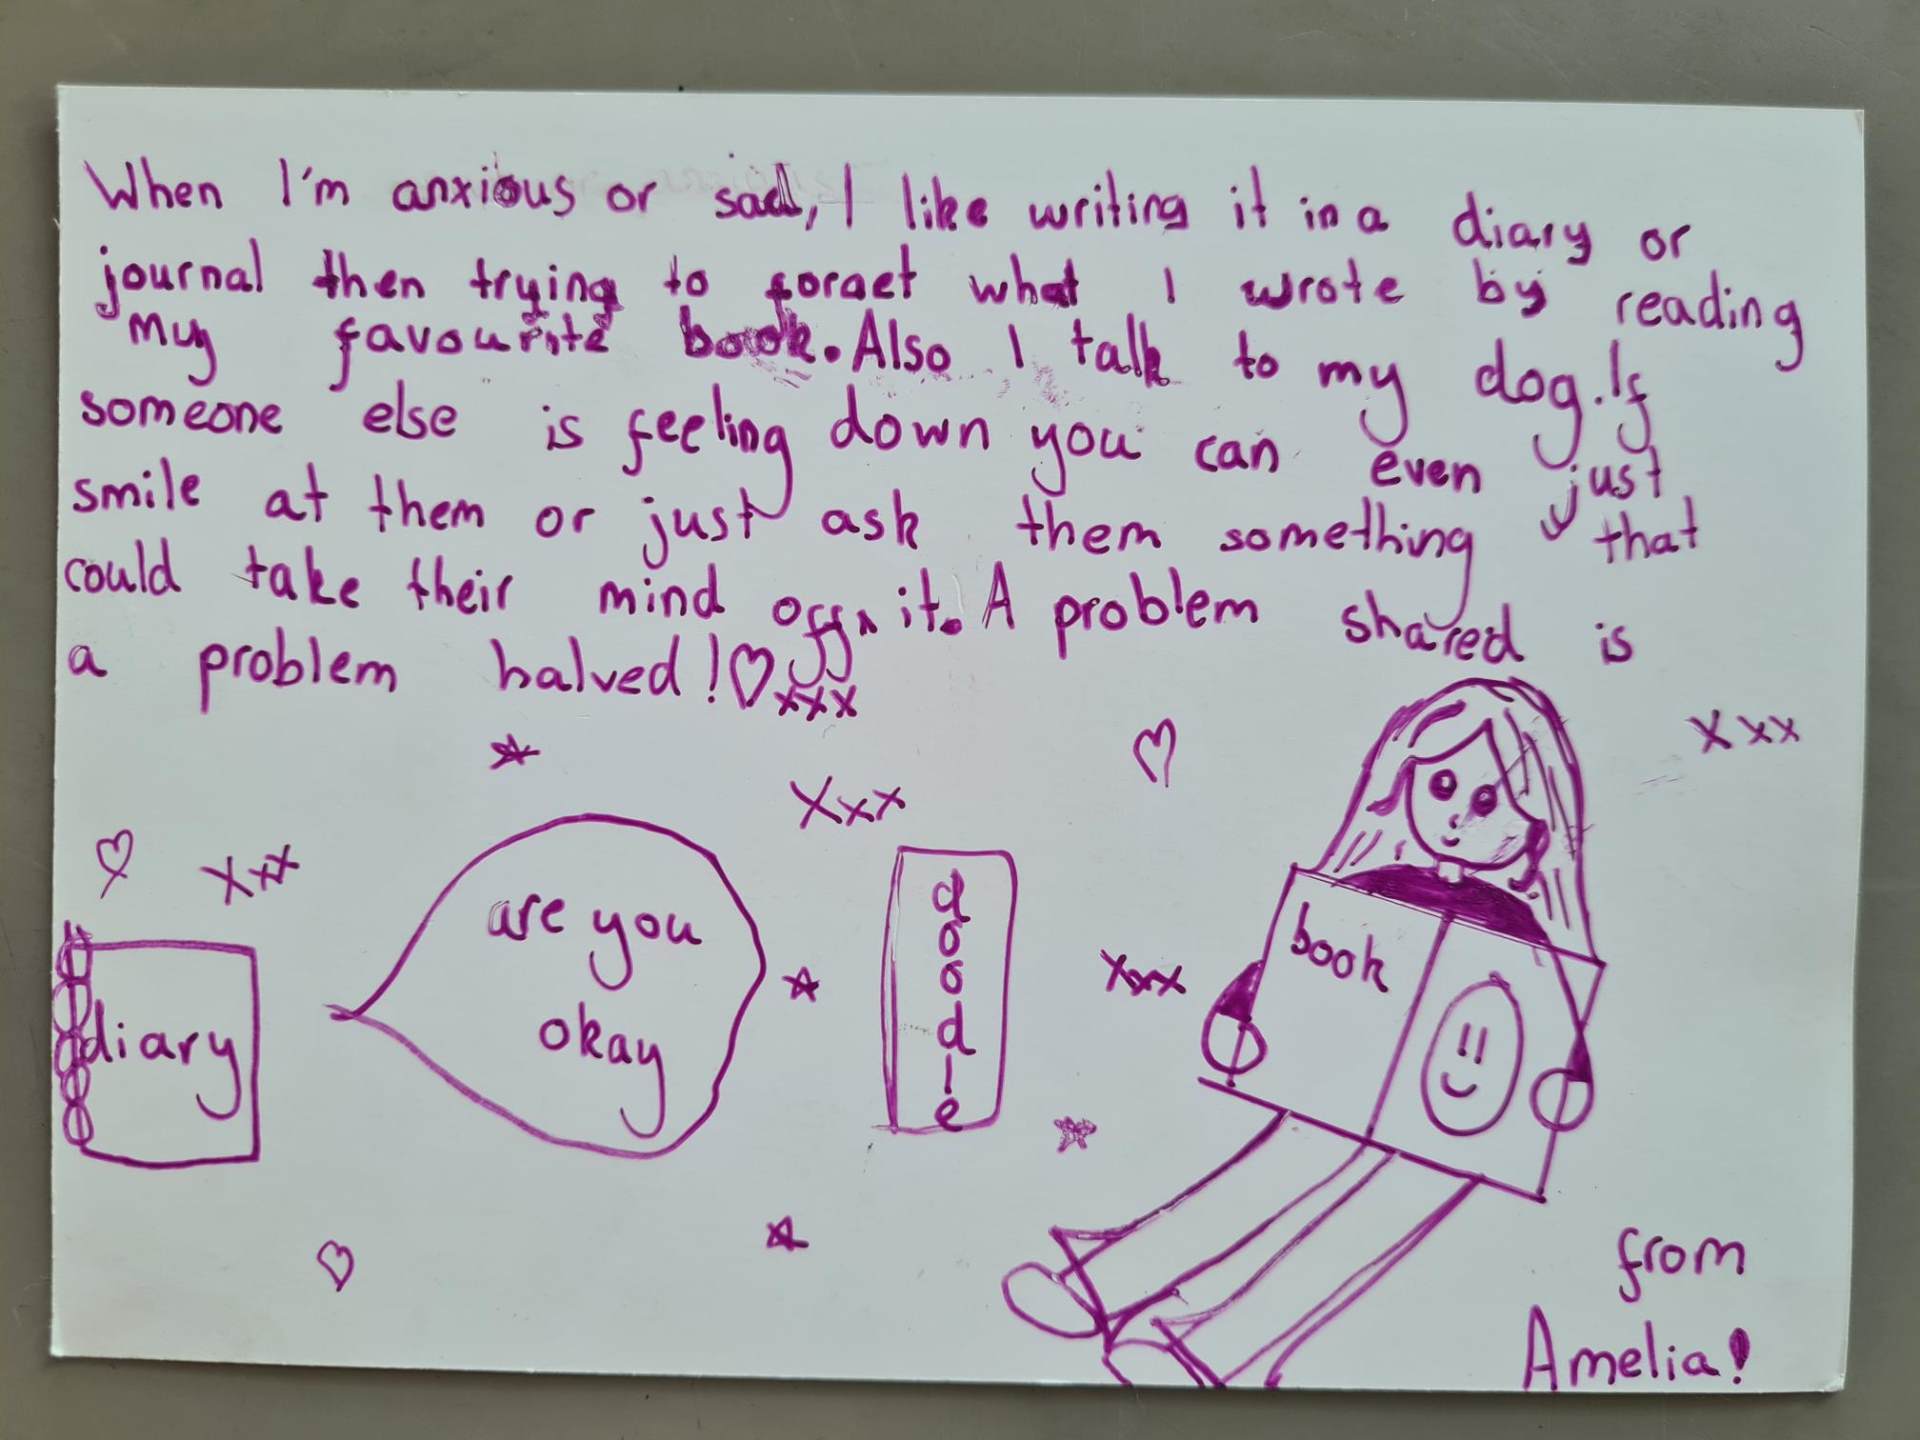 When I'm anxious or sad, I like writing it in a diary or
journal then trying to forget what I wrote by reading
my favourite book. Also I talk to my dog. If
someone else is feeling down you can even just
smile at them or just ask them something that
could take their mind off it. A problem shared is
a problem halved! ♡ xxx
xxx
Xxx
Xxx
are you
okay
doodle
book
Xxx
diary
from
Amelia!